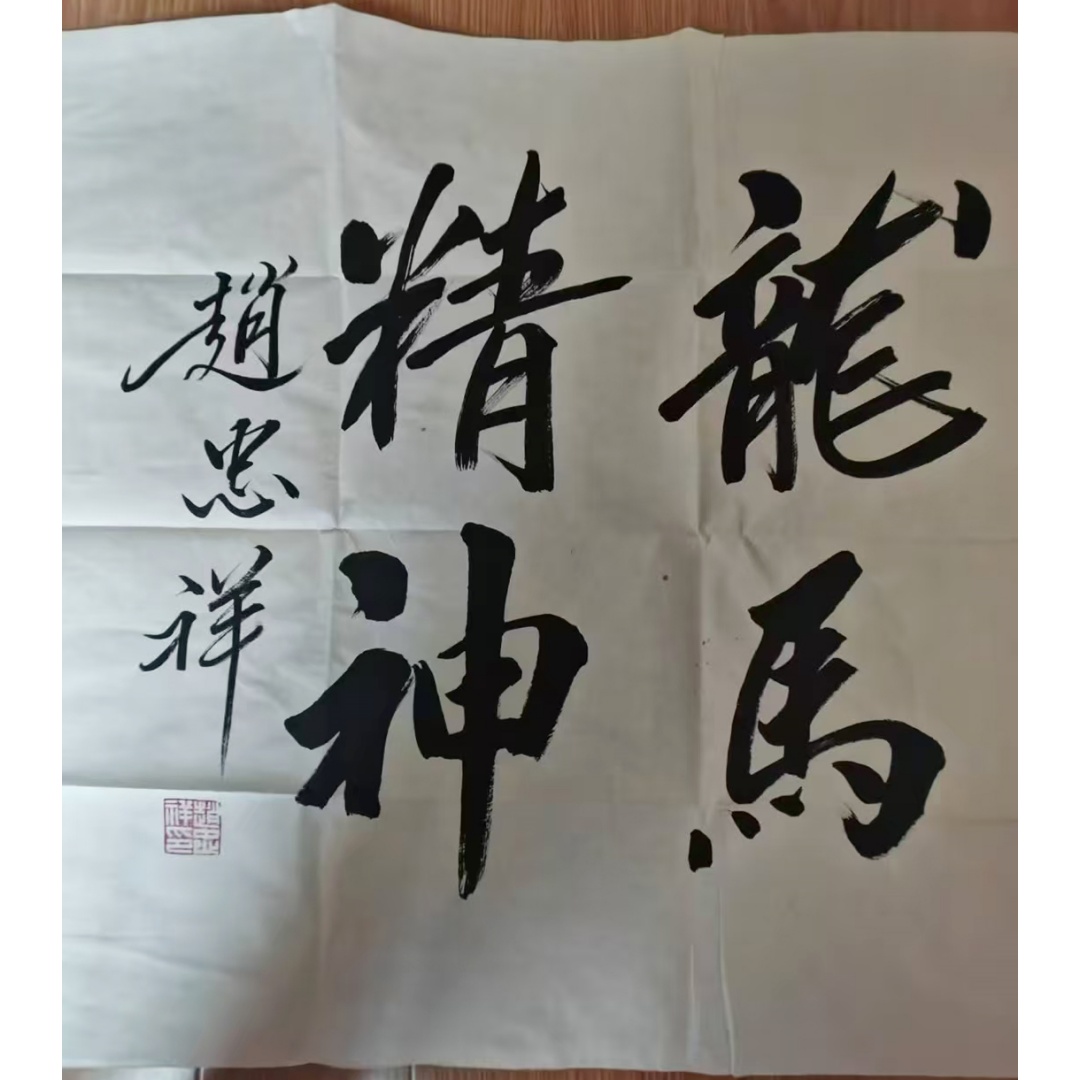 龍馬
精神
趙忠祥
趙忠祥印